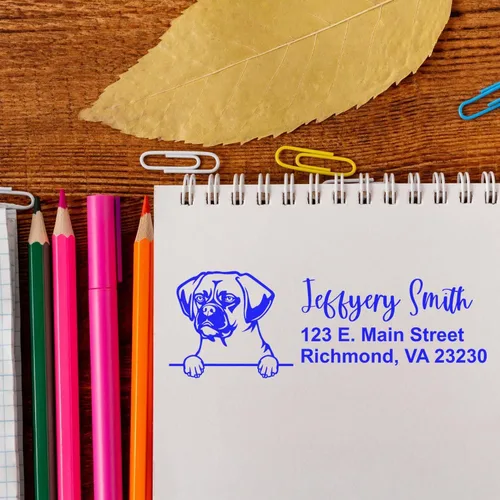 Jeffyery Smith
123 E. Main Street
Richmond, VA 23230